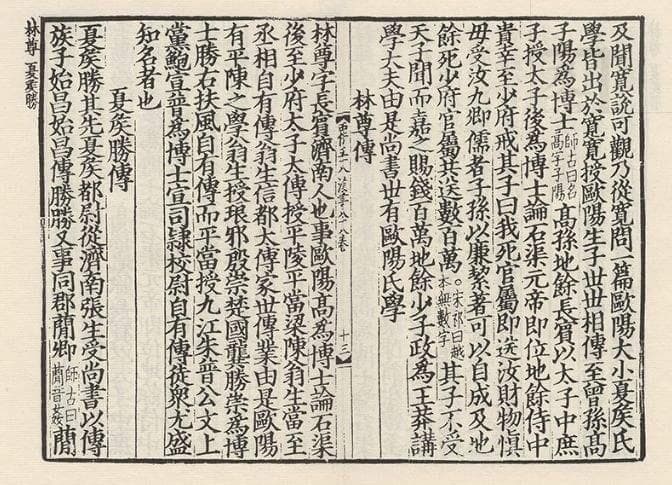 及聞寬說可觀乃從寬問一篇歐陽大小夏矦氏
學皆出於寬寬授歐陽生子丗丗相傳至曾孫髙
子陽為博士師古曰名髙字子陽髙孫地餘長賔以太子中庶
子授太子後為博士論石渠元帝即位地餘侍中
貴幸至少府戒其子曰我死官屬即送汝財物慎
毋受汝九卿儒者子孫以廉絜著可以自成及地
餘死少府官屬共送數百萬宋祁曰越本無數字其子不受
天子聞而嘉之賜錢百萬地餘少子政為王莽講
學大夫由是尚書丗有歐陽氏學
林尊傳
十三
林尊字長賔濟南人也事歐陽髙為博士論石渠
後至少府太子太傅授平陵平當梁陳翁生當至
丞相自有傳翁生信都太傅家丗傳業由是歐陽
有平陳之學翁生授琅邪殷崇楚國龔勝崇為博
士勝右扶風自有傳而平當授九江朱普公文上
黨鮑宣普為博士宣司隸校尉自有傳徒衆尤盛
知名者也
夏矦勝傳
夏矦勝其先夏矦都尉從濟南張生受尚書以傳
族子始昌始昌傳勝勝又事同郡蕳卿師古曰蕳音姦蕳
林尊 夏矦勝